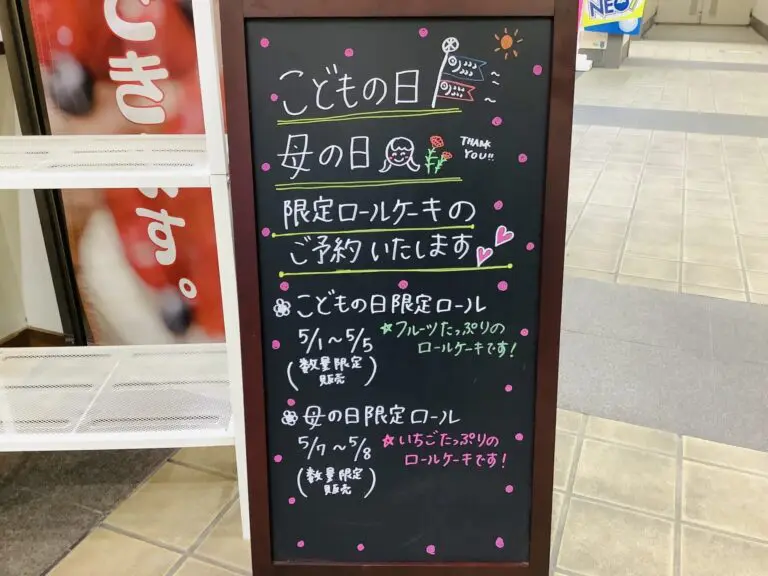 こどもの日
母の日
THANK
YOU!!
限定ロールケーキの
ご予約いたします
こどもの日限定ロール
5/1～5/5
☆フルーツたっぷりの
ロールケーキです!
(数量限定
販売)
母の日限定ロール
5/7～5/8
☆いちごたっぷりの
ロールケーキです!
(数量限定
販売)
NEO!